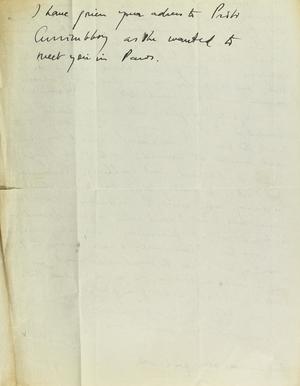 I have given your adress to Pristi
Currimbhoy as she wanted to
meet you in Paris.